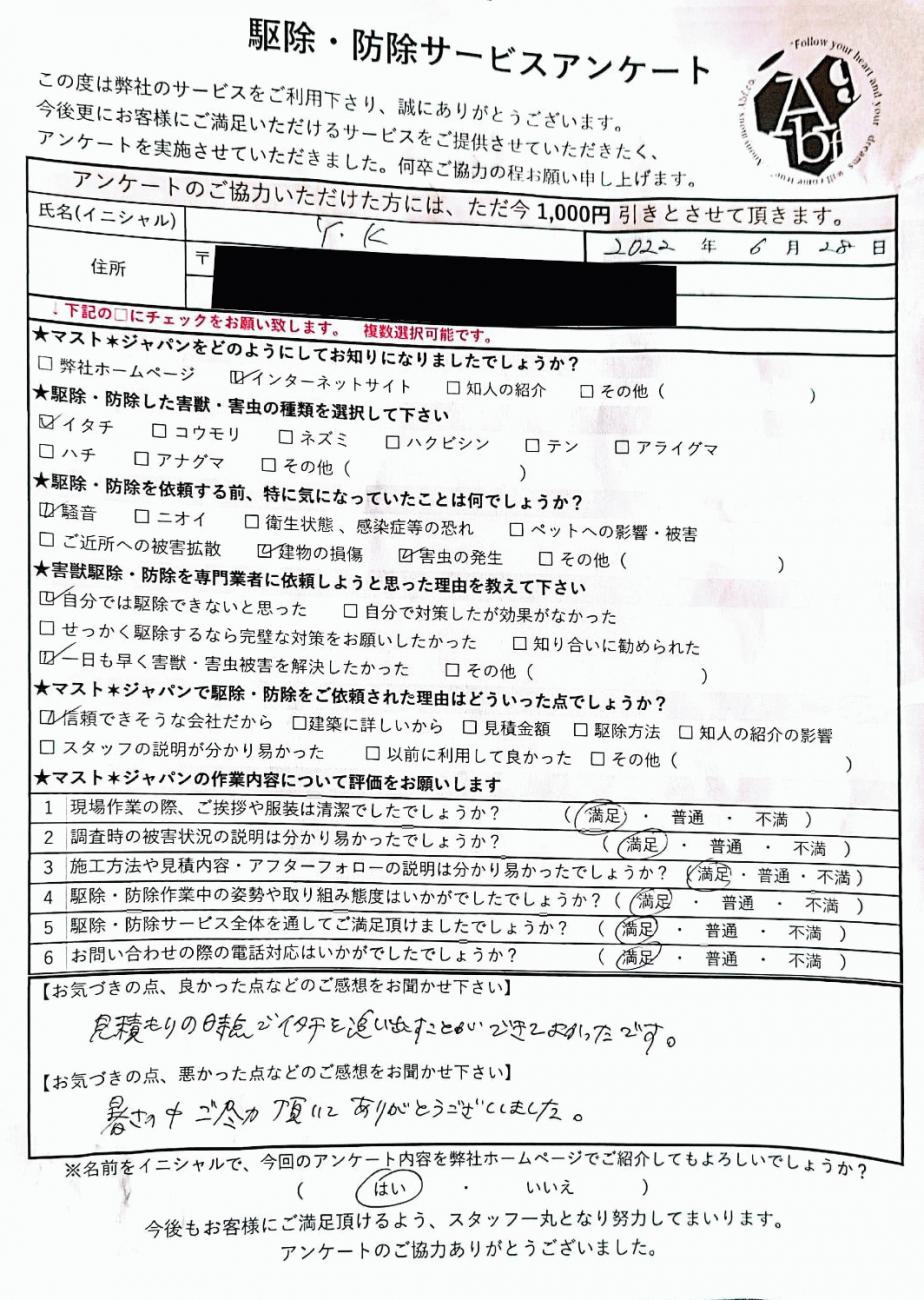 駆除・防除サービスアンケート
"Follow your heart and your dreams will come true
Ag
bf
この度は弊社のサービスをご利用下さり、誠にありがとうございます。
今後更にお客様にご満足いただけるサービスをご提供させていただきたく、
アンケートを実施させていただきました。何卒ご協力の程お願い申し上げます。
アンケートのご協力いただけた方には、ただ今1,000円引きとさせて頂きます。
氏名(イニシャル) Y.K 2022 年 6 月 28 日
住所 〒
↓下記の□にチェックをお願い致します。 複数選択可能です。
★マスト＊ジャパンをどのようにしてお知りになりましたでしょうか？
□ 弊社ホームページ ☑インターネットサイト □ 知人の紹介 □ その他（ ）
★駆除・防除した害獣・害虫の種類を選択して下さい
☑ イタチ □ コウモリ □ ネズミ □ ハクビシン □ テン □ アライグマ
□ ハチ □ アナグマ □ その他（ ）
★駆除・防除を依頼する前、特に気になっていたことは何でしょうか？
☑騒音 □ ニオイ □ 衛生状態、感染症等の恐れ □ ペットへの影響・被害
□ ご近所への被害拡散 ☑建物の損傷 ☑害虫の発生 □ その他（ ）
★害獣駆除・防除を専門業者に依頼しようと思った理由を教えて下さい
☑自分では駆除できないと思った □ 自分で対策したが効果がなかった
□ せっかく駆除するなら完璧な対策をお願いしたかった □ 知り合いに勧められた
☑一日も早く害獣・害虫被害を解決したかった □ その他（ ）
★マスト＊ジャパンで駆除・防除をご依頼された理由はどういった点でしょうか？
☑信頼できそうな会社だから □建築に詳しいから □ 見積金額 □ 駆除方法 □ 知人の紹介の影響
□ スタッフの説明が分かり易かった □ 以前に利用して良かった □ その他（ ）
★マスト＊ジャパンの作業内容について評価をお願いします
1 現場作業の際、ご挨拶や服装は清潔でしたでしょうか？ （ 満足 ・ 普通 ・ 不満 ）
2 調査時の被害状況の説明は分かり易かったでしょうか？ （ 満足 ・ 普通 ・ 不満 ）
3 施工方法や見積内容・アフターフォローの説明は分かり易かったでしょうか？（満足・普通・不満）
4 駆除・防除作業中の姿勢や取り組み態度はいかがでしたでしょうか？（ 満足 ・ 普通 ・ 不満 ）
5 駆除・防除サービス全体を通してご満足頂けましたでしょうか？ （ 満足 ・ 普通 ・ 不満 ）
6 お問い合わせの際の電話対応はいかがでしたでしょうか？ （ 満足 ・ 普通 ・ 不満 ）
【お気づきの点、良かった点などのご感想をお聞かせ下さい】
見積もりの時点でイタチを追い出すことができてよかったです。
【お気づきの点、悪かった点などのご感想をお聞かせ下さい】
暑さの中ご尽力頂いてありがとうございしました。
※名前をイニシャルで、今回のアンケート内容を弊社ホームページでご紹介してもよろしいでしょうか？
（ はい ・ いいえ ）
今後もお客様にご満足頂けるよう、スタッフ一丸となり努力してまいります。
アンケートのご協力ありがとうございました。